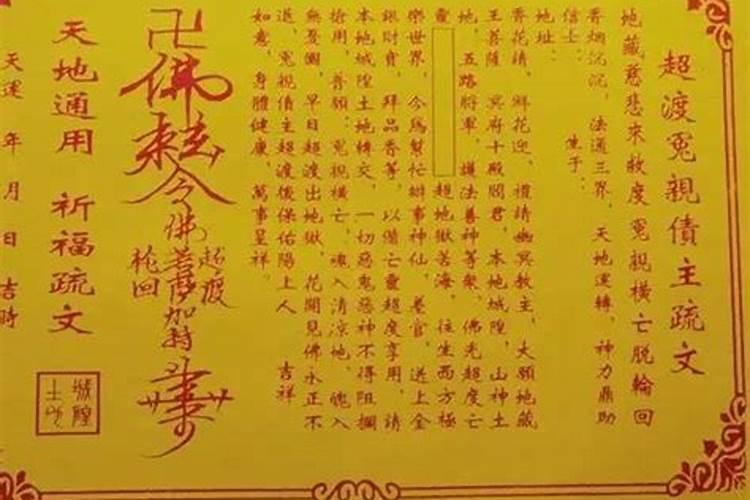 超渡冤親債主疏文
地藏慈悲來救度 冤親橫亡脫輪回
香烟沉沉，法通三界，天地運轉，神力鼎助
信士： 生于：
地址：
香花請，鮮花迎，禮請幽冥教主，大願地藏
王菩薩 冥府十殿閻君，本地城隍，山神土
地，五路將軍，護法善神等衆，佛光超度亡
靈 超地獄苦海，往生西方極
樂世界，今爲幫忙辦事神仙，差官，送上金
銀財寶，拜品香等，以備亡靈超度享用，請
本地城隍土地轉交，一切惡鬼惡神不得阻攔
搶用，普願：冤親橫亡，魂入清凉地，魄入
無憂國，早日超渡出地獄，花開見佛永正不
退，冤親債主超渡後保佑陽上人 吉祥
如意，身體健康，萬事呈祥。
卍佛 令
佛菩薩加持
超渡
輪回
天地通用 祈福疏文
城隍
土地
天運 年 月 日 吉時